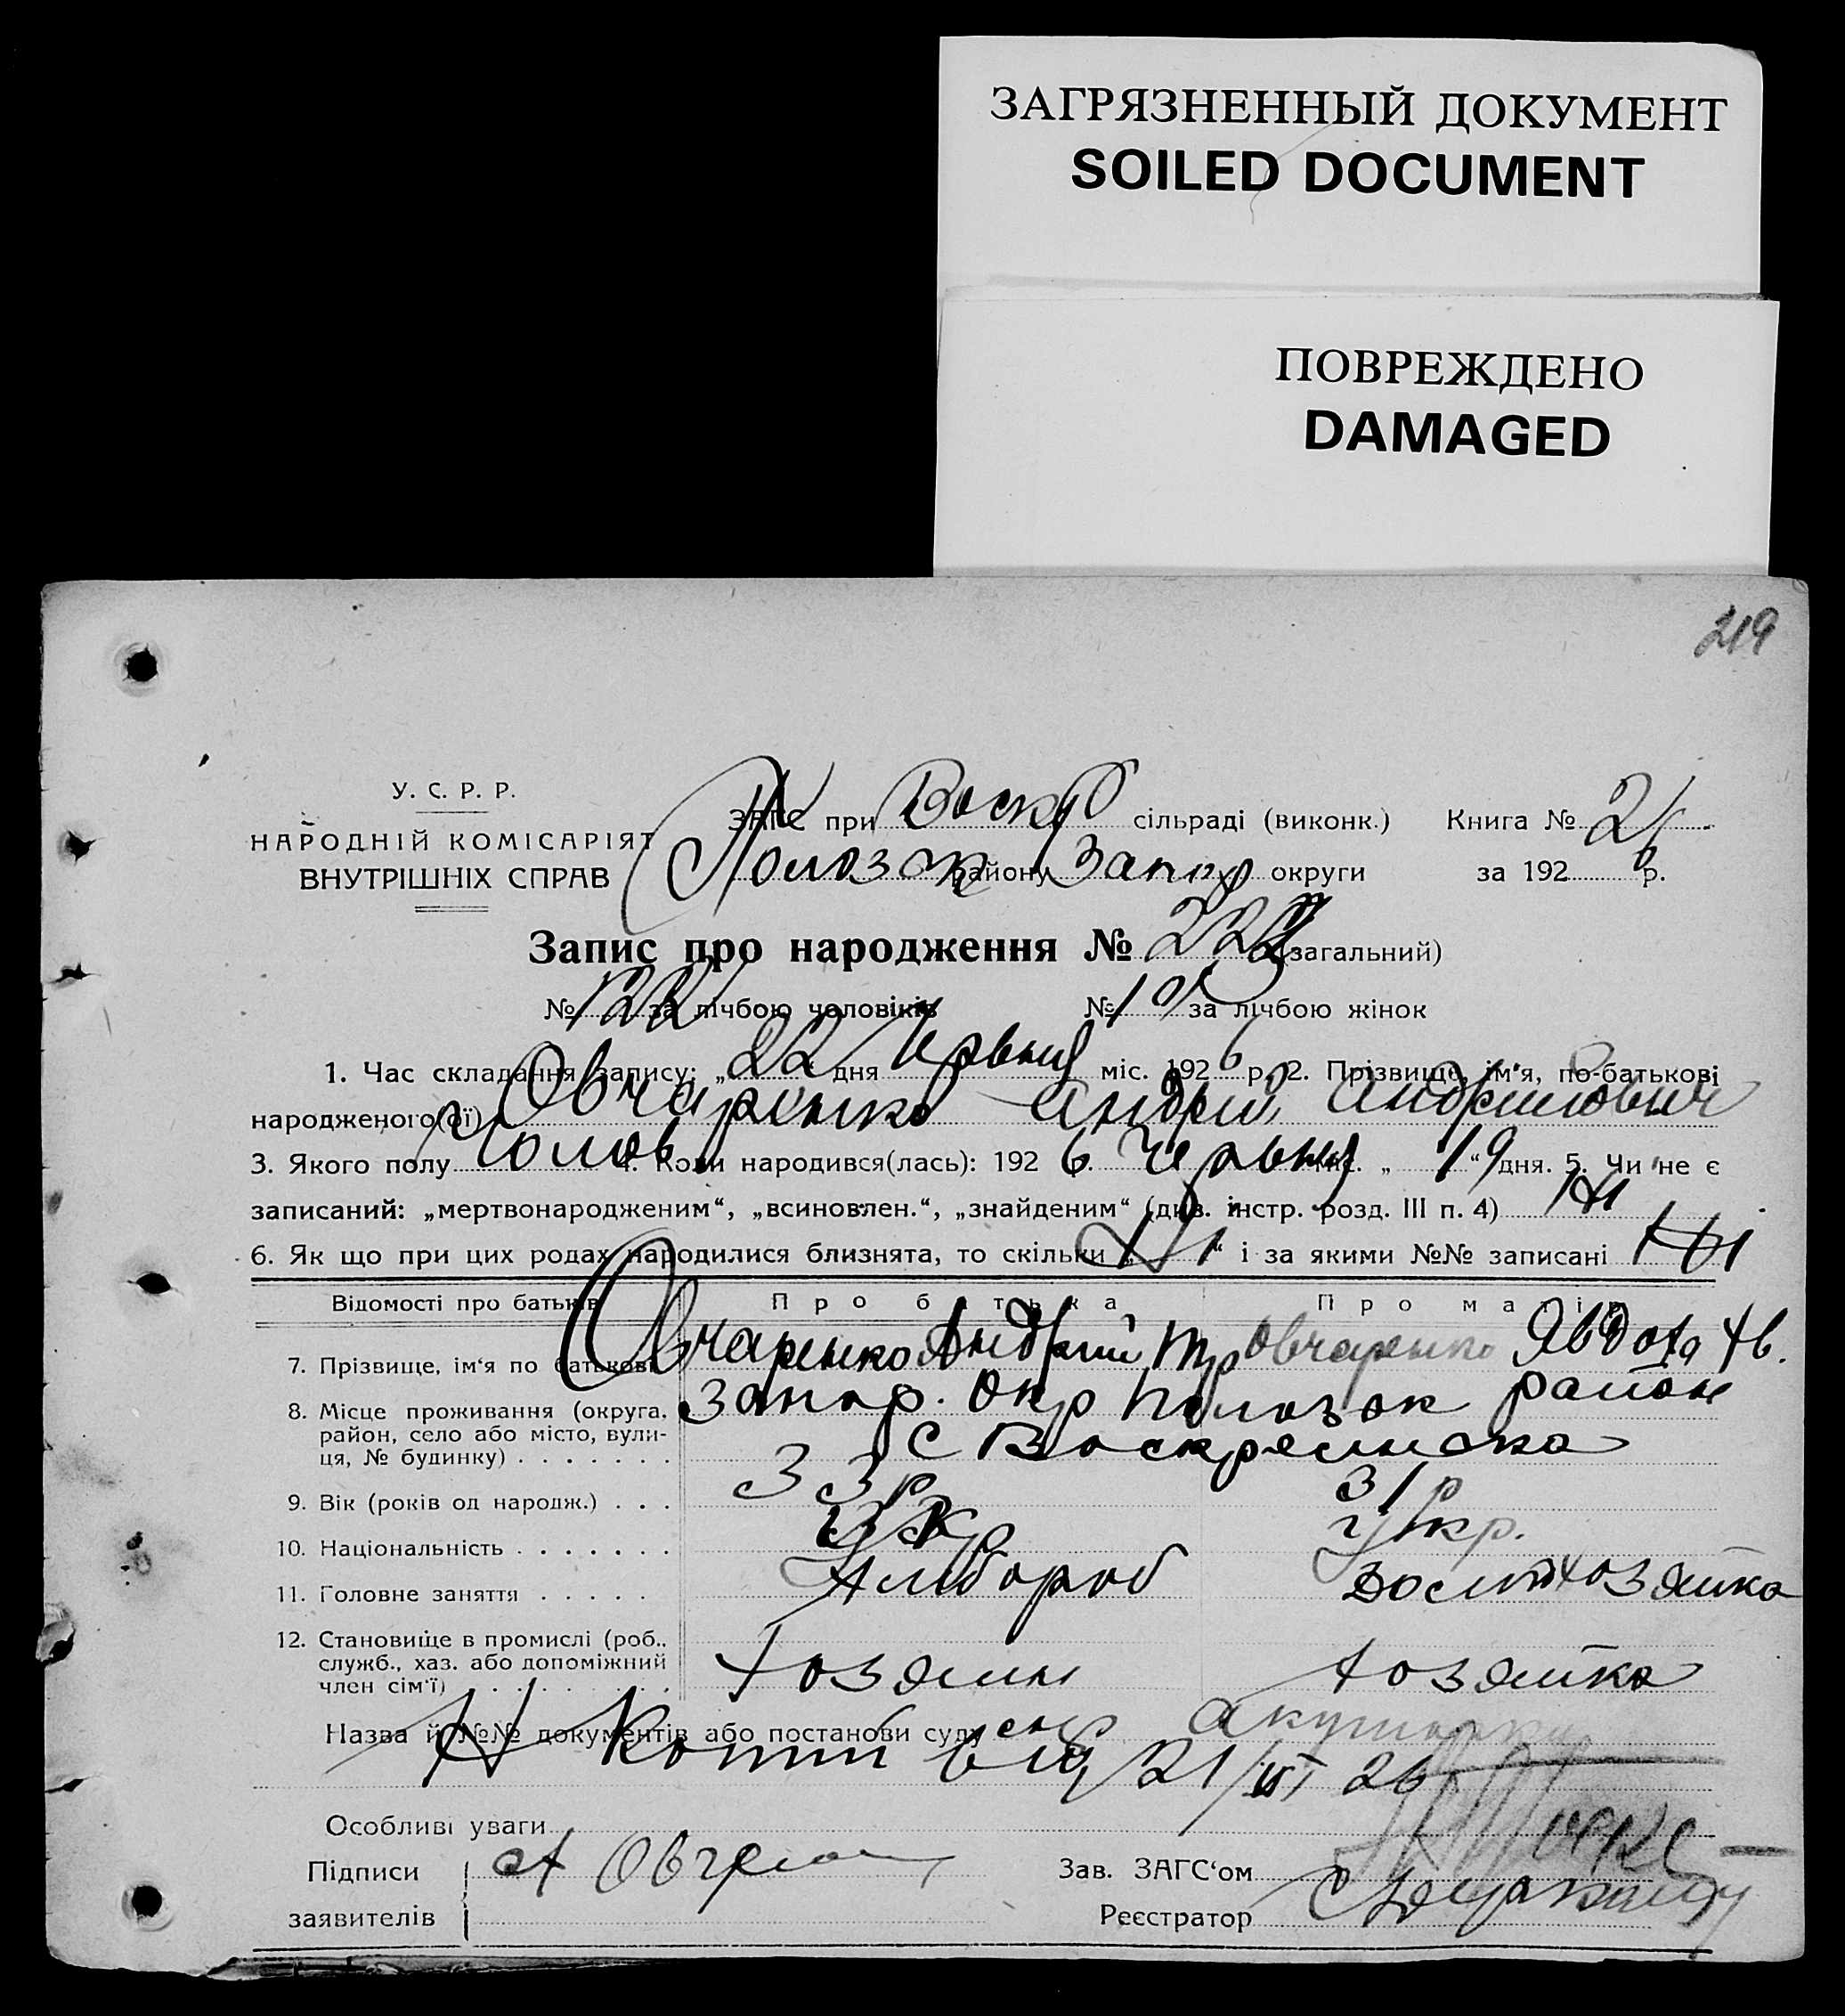 ЗАГРЯЗНЕННЫЙ ДОКУМЕНТ
SOILED DOCUMENT
ПОВРЕЖДЕНО
DAMAGED
219
У. С. Р. Р.
НАРОДНІЙ КОМІСАРІЯТ
ВНУТРІШНІХ СПРАВ
ЗАГС при Воскр сільраді (виконк.) Книга № 2
Пологок району Запор округи за 192 6 р.
Запис про народження № 222 (загальний)
№ 122 за лічбою чоловіків № за лічбою жінок
1. Час складання запису: „ 22 дня Червня міс. 192 6 р. 2. Прізвище, ім'я, по-батькові
народженого(ої) Овчаренко Андрій Андрійович
3. Якого полу Чолов. 4. Коли народився(лась): 192 6 Червня міс. „ 19 “ дня. 5. Чи не є
записаний: „мертвонародженим“, „всиновлен.“, „знайденим“ (див. інстр. розд. III п. 4) Ні
6. Як що при цих родах народилися близнята, то скільки „ Ні “ і за якими №№ записані Ні
Відомості про батьків Про батька Про матір
7. Прізвище, ім'я по батькові Овчаренко Андрій Тр Овчаренко Явдоха Ив.
8. Місце проживання (округа, Запор. Окр Полозок район
район, село або місто, вули- с Воскресенка
ця, № будинку) . . . . . . .
9. Вік (років од народж.) . . . 33 р 31 р
10. Національність . . . . . . . Укр Укр.
11. Головне заняття . . . . . Хлібороб Домохозяйка
12. Становище в промислі (роб.,
служб., хаз. або допоміжний Хозяин Хозяйка
член сім'ї) . . . . . . . . .
Назва й №№ документів або постанови суду спр акушорки
від 21/VI 26
Особливі уваги
Підписи А Овчрен Зав. ЗАГС'ом
заявителів Реєстратор